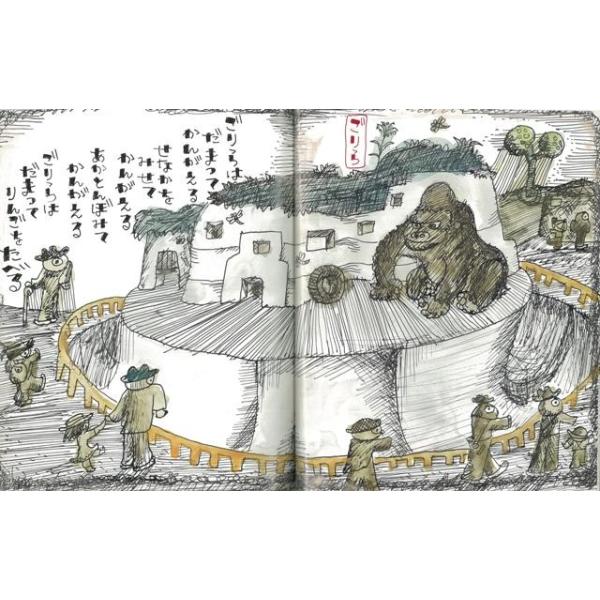 ごりら
ごりらは
だまって
かんがえる
せなかを
みせて
かんがえる
あかとんぼみて
かんがえる
ごりらは
だまって
りんごをたべる